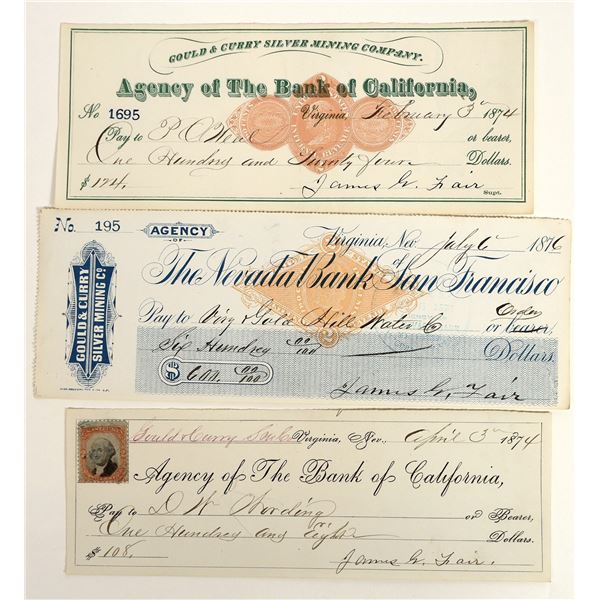 GOULD & CURRY SILVER MINING COMPANY.
Agency of The Bank of California,
No 1695 Virginia, February 3rd 1874
Pay to P. O. or bearer,
One Hundred and Twenty four Dollars.
$ 124. James G. Fair
Supt.
No. 195 AGENCY Virginia, Nev July 6 1876
OF
The Nevada Bank of San Francisco
GOULD & CURRY
SILVER MINING CO.
Order
Pay to Virg & Gold Hill Water Co or bearer
Six Hundred 00/100 Dollars.
$ 600. 00/100
James G. Fair
Gould & Curry Virginia, Nev. April 3rd 1874
Agency of The Bank of California,
Pay to D. W. or Bearer,
One Hundred and Eight Dollars.
$ 108. James G. Fair.